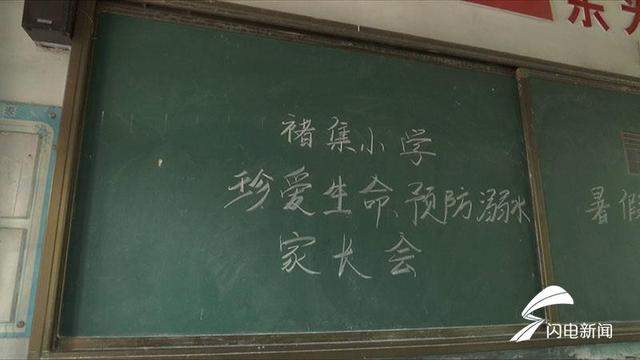 褚集小学
珍爱生命、预防溺水
家长会
暑假
闪电新闻